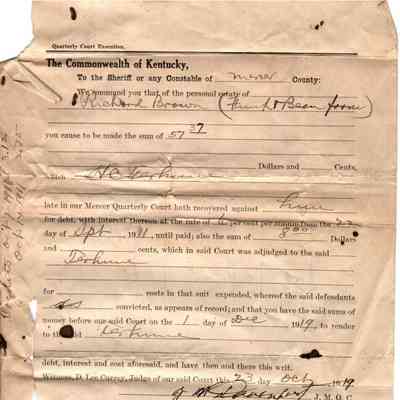 Quarterly Court Execution.
The Commonwealth of Kentucky,
To the Sheriff or any Constable of Mercer County:
We command you that of the personal estate of
Richard Brown
you cause to be made the sum of 57 37
Dollars and Cents,
which H C Terhune
late in our Mercer Quarterly Court hath recovered against him
for debt, with interest thereon at the rate of 6 per cent per annum from the 22
day of Spt 1911 until paid; also the sum of 8 00 Dollars
and cents, which in said Court was adjudged to the said
Terhune
for costs in that suit expended, whereof the said defendants
convicted, as appears of record; and that you have the said sums of
money before our said Court on the 1 day of Dec 1919, to render
to the said Terhune
debt, interest and cost aforesaid, and have then and there this writ.
Witness, D. Lee Currey, Judge of our said Court this 23 day Oct 1919
J. M. Q. C.